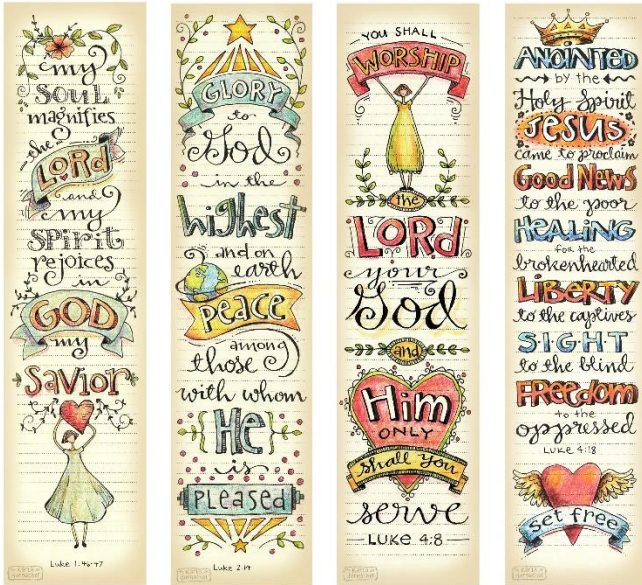 my
SOUL
magnifies
the
LORD
and
my
SPIRIT
rejoices
in
GOD
my
SAVIOR
Luke 1:46-47
GLORY
to
God
in the
highest
and on
earth
PEACE
among
those
with whom
He
is
PLEASED
Luke 2:14
YOU SHALL
WORSHIP
the
LORD
your
God
and
Him
ONLY
shall you
serve
LUKE 4:8
ANOINTED
by the
Holy Spirit
JESUS
came to proclaim
GOOD NEWS
to the poor
HEALING
for the
brokenhearted
LIBERTY
to the captives
SIGHT
to the blind
FREEDOM
to the
oppressed
LUKE 4:18
set free